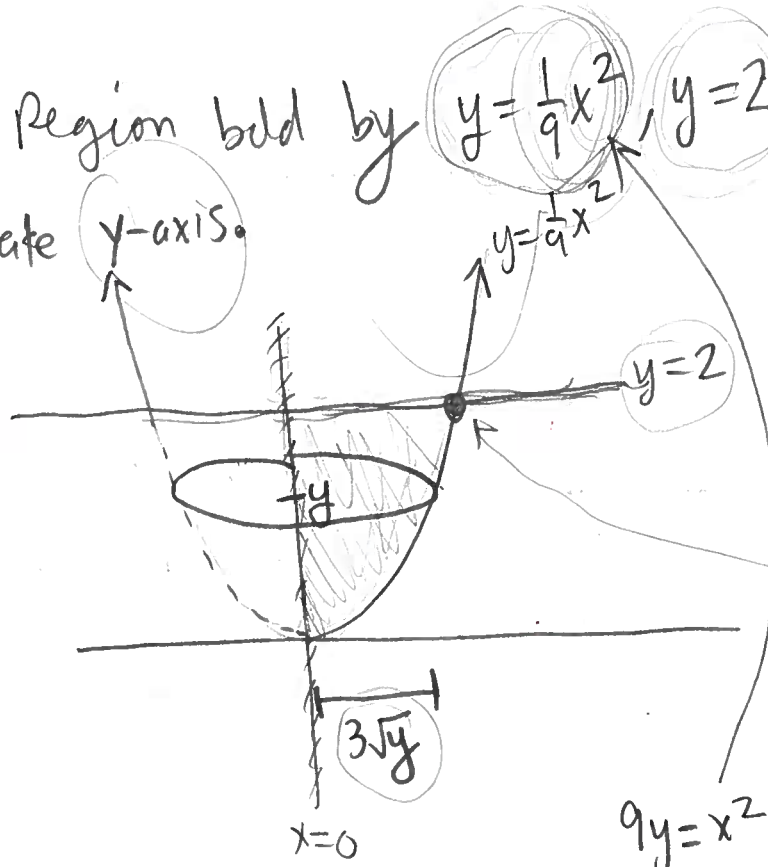 Region bdd by y = 1/9 x², y = 2
ate y-axis.
y = 1/9 x²
y = 2
y
3√y
x=0
9y = x²